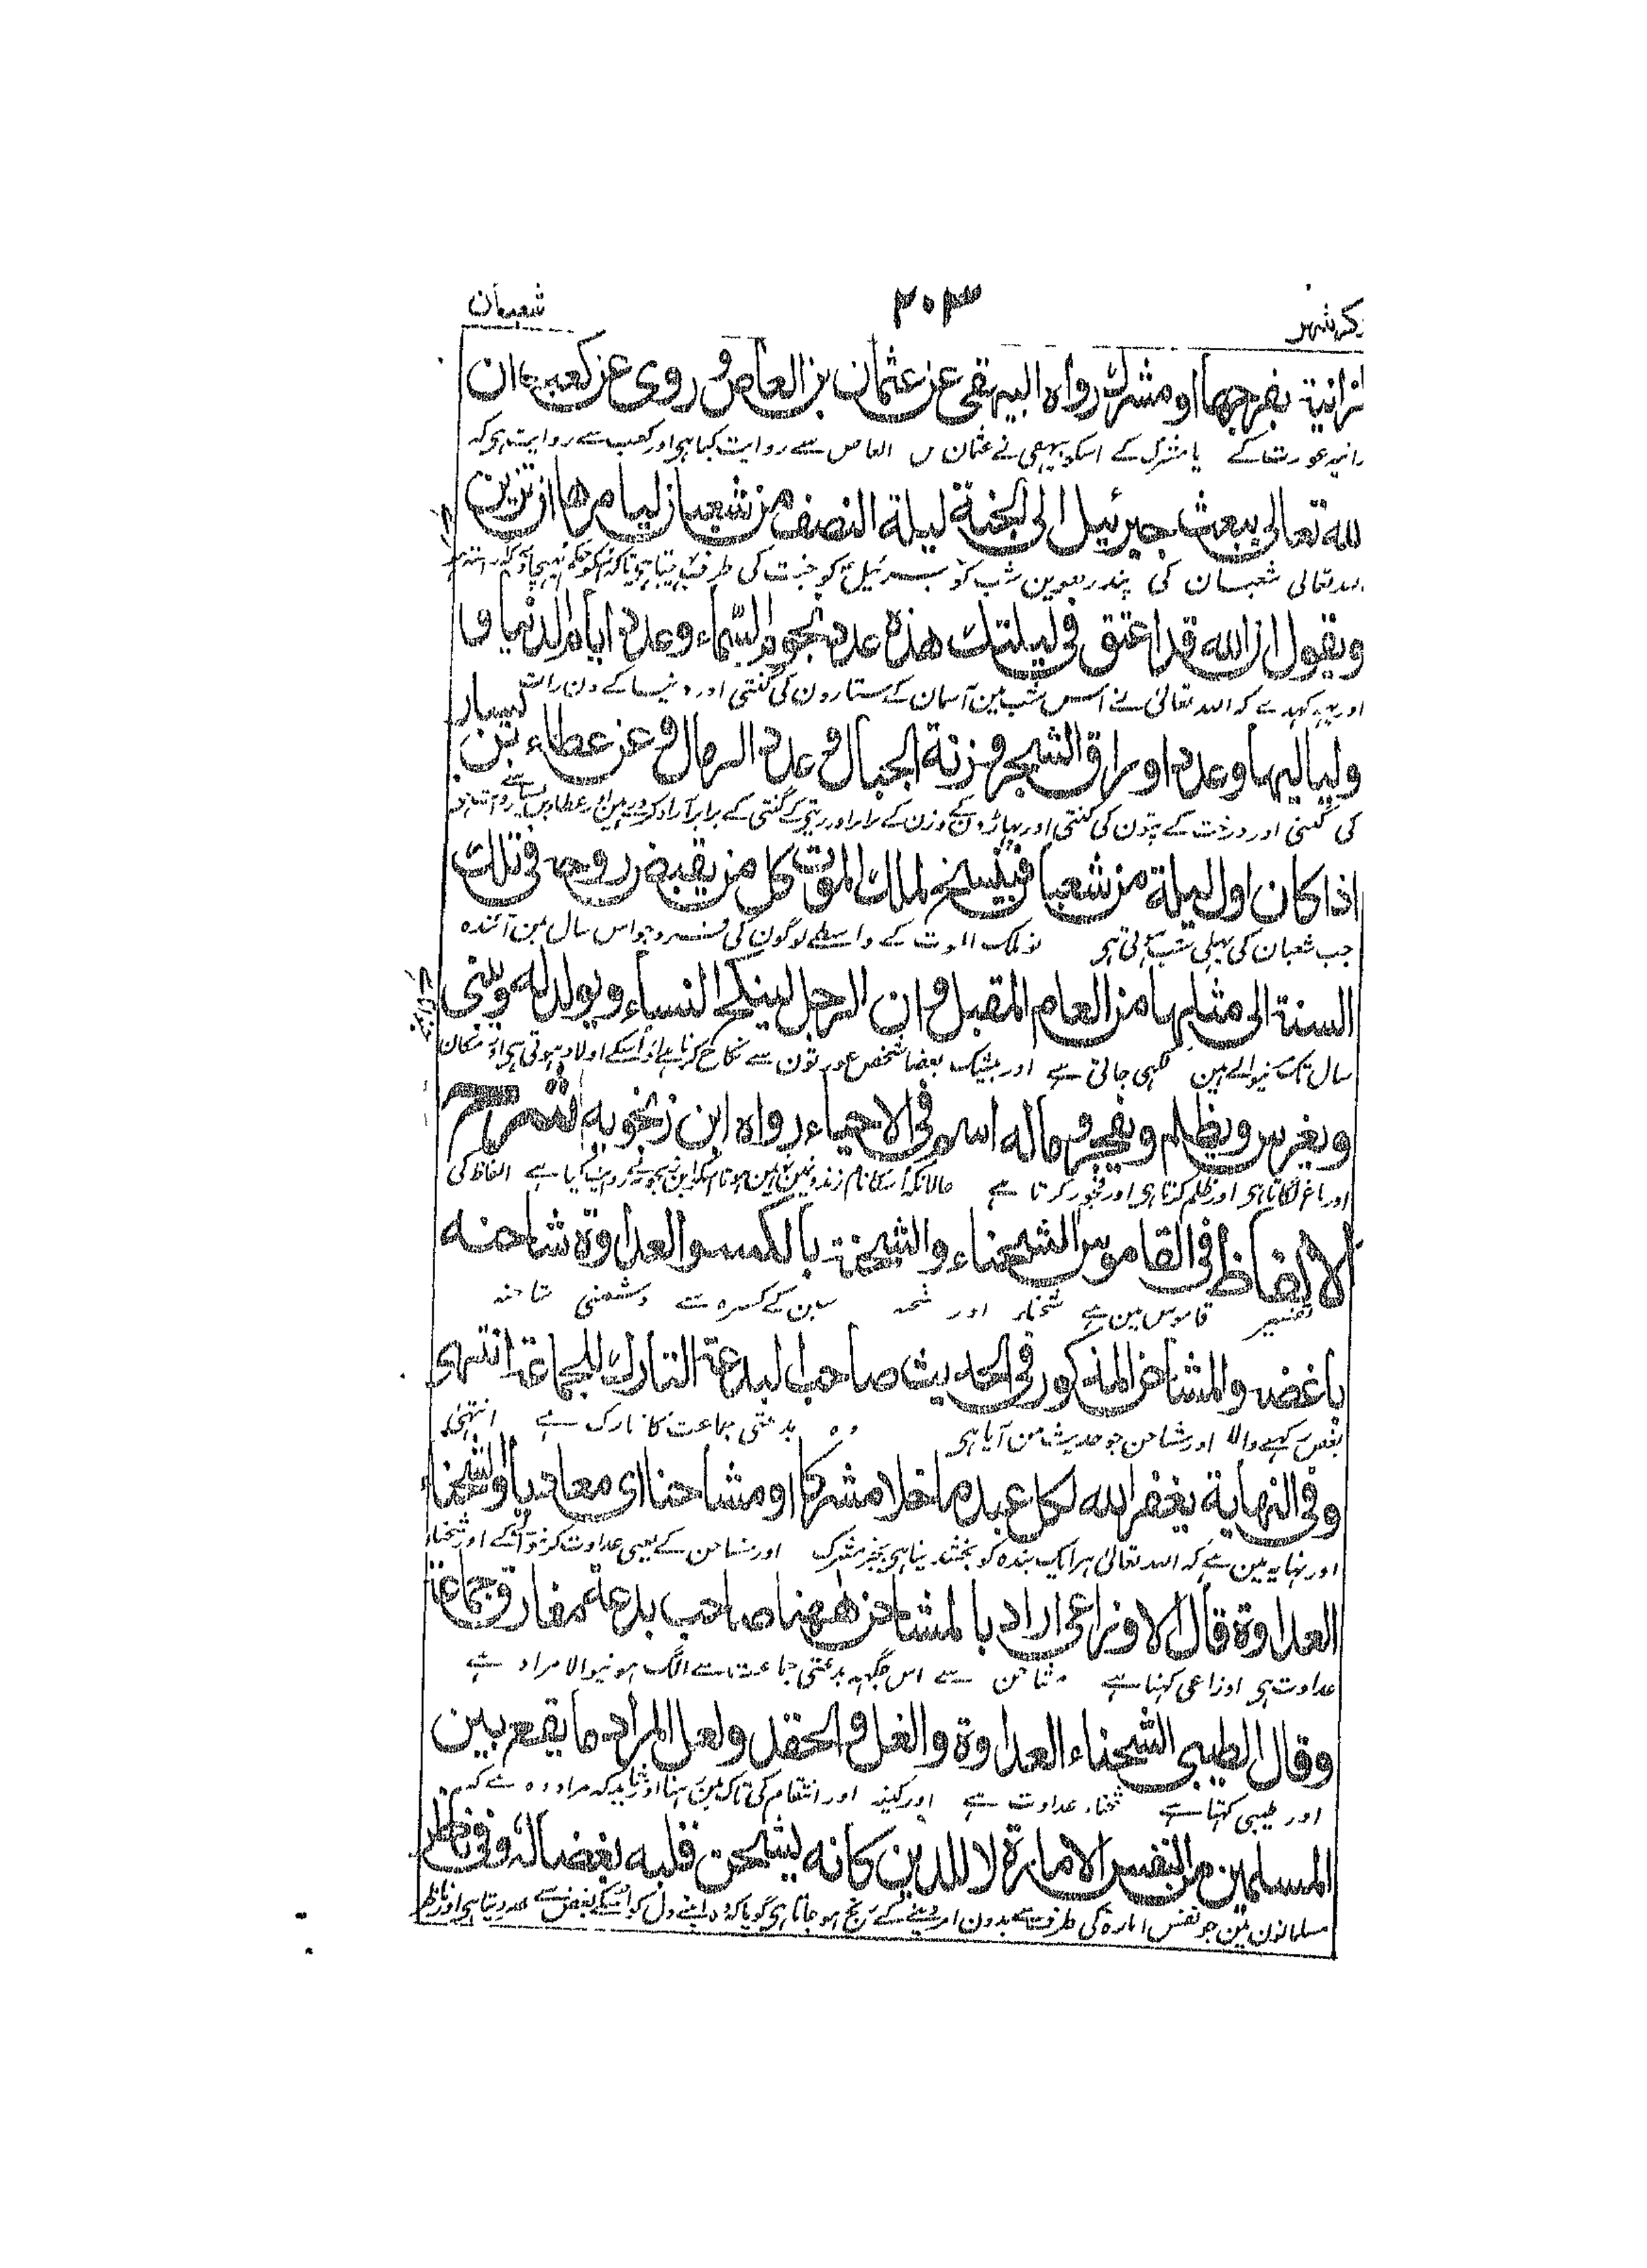 ذکر شهر ۲۰۳ شعبان
لزانية بفرجها او مشرك رواه البيهقي عن عثمان بن العاص و روى عن كعب ان
زانیہ عورت کے یا مشرک کے اسکو بیہقی نے عثمان بن العاص سے روایت کیا ہی اور کعب سے روایت ہی کہ
لله تعالى يبعث جبرئيل الى الجنة ليلة النصف من شعبان ليامرها ان تزين
اللہ تعالی شعبان کی پندرہوین شب کو جبرئیل کو جنت کی طرف
ويقول ان الله قد اعتق في ليلتك هذه عدد نجوم السماء وعدد ايام الدنيا و
اور یہ کہہ دے کہ اللہ تعالیٰ نے اس شب مین آسمان کے ستارون کی گنتی اور دنیا کے دن رات
ولياليها وعدد اوراق الشجر وزنة الجبال و عدد الرمال و عن عطاء بن يسار
کی گنتی اور درخت کے پتون کی گنتی اور پہاڑون کے وزن کے برابر اور ریتی کے گنتی کے برابر آزاد کر دیے ہین اور عطاء بن یسار سے
اذا كان اول ليلة من شعبان فينسخ لملك الموت كل من يقبض روحه في تلك
جب شعبان کی پہلی شب ہوتی ہی تو ملک الموت کے واسطے لوگون کی فرد جو اس سال مین آئندہ
السنة الى مثلها من العام المقبل و ان الرجل لينكح النساء و يولد له ويبني
سال تک مرنیوالے ہین لکھی جاتی ہے اور بیشک بعضا شخص عورتون سے نکاح کرتا ہے اور اسکے اولاد ہوتی ہی اور مکان
ويغرس ويظلم ويفجر وماله اسم في الاحياء رواه ابن زنجويه شرح
اور باغ لگاتا ہی اور ظلم کرتا ہی اور فجور کرتا ہے حالانکہ اسکا نام زندون مین نہین ہوتا اسکو ابن زنجویہ نے روایت کیا ہے الفاظ کی
الالفاظ في القاموس الشحناء والشحنة بالكسر العداوة شاحنه
تفسیر قاموس مین ہے شحناء اور شحنہ سین کے کسرہ سے دشمنی شاحنہ
باغضه والمشاحن المذكور في الحديث صاحب البدعة التارك للجماعة انتهى
بغض رکہنے والا اور مشاحن جو حدیث مین آیا ہی وہ بدعتی جماعت کا تارک ہے انتہیٰ
وفي النهاية يغفر الله لكل عبد ما خلا مشركا او مشاحنا اى معاديا والشحناء
اور نہایہ مین ہے کہ اللہ تعالیٰ ہر ایک بندہ کو بخش دیتا ہی بجز مشرک اور مشاحن کے یعنی عداوت کرنیوالے کے اور شحناء
العداوة قال الاوزاعى اراد بالمشاحن ههنا صاحب بدعة مفارق جماعة
عداوت ہی اوزاعی کہتا ہے مشاحن سے اس جگہہ بدعتی جماعت سے الگ ہونیوالا مراد ہے
وقال الطيبي الشحناء العداوة والغل و الحقد ولعل المراد ما يقع بين
اور طیبی کہتا ہے شحناء عداوت ہے اور کینہ اور انتقام کی تاک مین رہنا اور شاید کہ مراد وہ ہے کہ
المسلمين من النفس الامارة لا للدين كانه يشحن قلبه بغضا له وفي ناظر
مسلمانون مین جو نفس امارہ کی طرف سے بدون امر دینے کے رنج ہو جاتا ہی گویا کہ وہ اپنے دل کو اسکے بغض سے بھر دیتا ہی اور ناظر